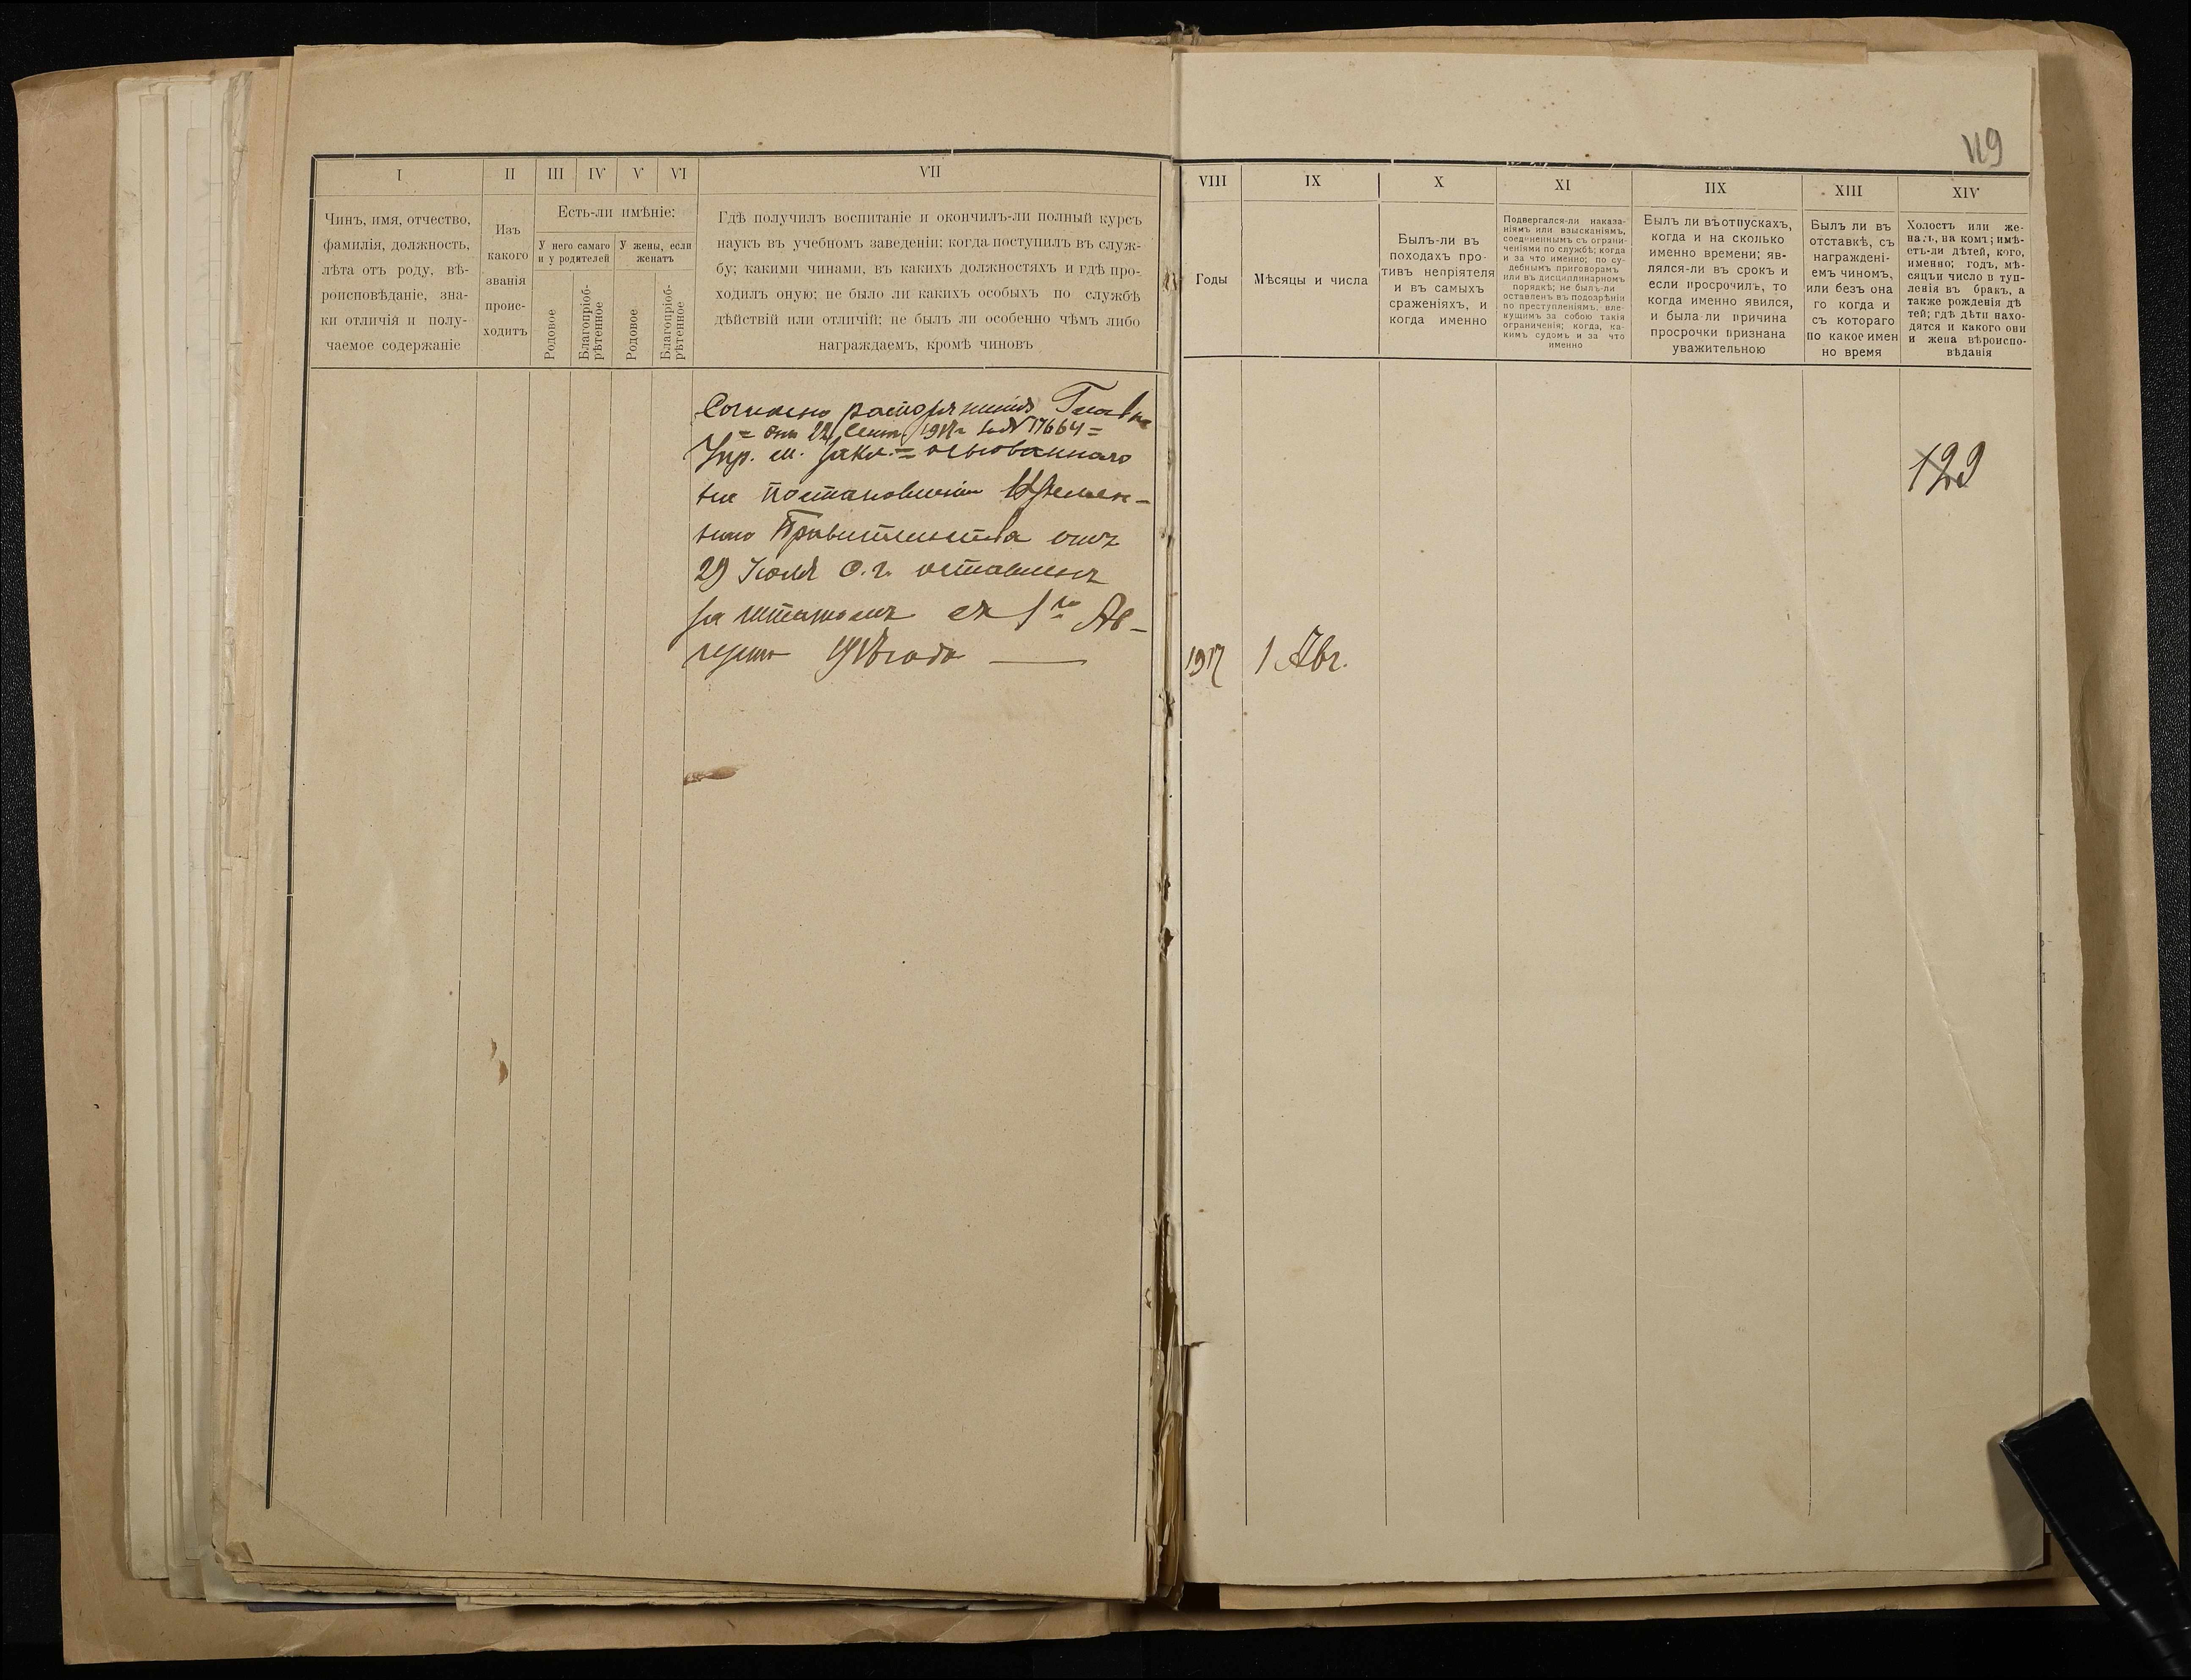 119
I
II
III
IV
V
VI
VII
Чинъ, имя, отчество,
фамилія, должность,
лѣта отъ роду, вѣ-
роисповѣданіе, зна-
ки отличія и полу-
чаемое содержаніе
Изъ
какого
званія
проис-
ходитъ
Есть-ли имѣніе:
У него самаго
и у родителей
У жены, если
женатъ
Родовое
Благопріоб-
рѣтенное
Родовое
Благопріоб-
рѣтенное
Гдѣ получилъ воспитаніе и окончилъ-ли полный курсъ
наукъ въ учебномъ заведеніи; когда поступилъ въ служ-
бу; какими чинами, въ какихъ должностяхъ и гдѣ про-
ходилъ оную; не было ли какихъ особыхъ по службѣ
дѣйствій или отличій; не былъ ли особенно чѣмъ либо
награждаемъ, кромѣ чиновъ
Согласно распоряженія Главна
= отъ 22 Сент. 1917 г. за № 17664 =
Упр. м. закл. = основаннаго
на постановленіи Времен-
наго Правительства отъ
29 Іюля с. г. оставленъ
за штатомъ съ 1го Ав-
густа 1917 года
VIII
IX
X
XI
IIX
XIII
XIV
Годы
Мѣсяцы и числа
Былъ-ли въ
походахъ про-
тивъ непріятеля
и въ самыхъ
сраженіяхъ, и
когда именно
Подвергался-ли наказа-
ніямъ или взысканіямъ,
соединеннымъ съ ограни-
ченіями по службѣ; когда
и за что именно; по су-
дебнымъ приговорамъ
или въ дисциплинарномъ
порядкѣ; не былъ-ли
оставленъ въ подозрѣніи
по преступленіямъ, вле-
кущимъ за собою такія
ограниченія; когда, ка-
кимъ судомъ и за что
именно
Былъ ли въ отпускахъ,
когда и на сколько
именно времени; яв-
лялся-ли въ срокъ и
если просрочилъ, то
когда именно явился,
и была-ли причина
просрочки признана
уважительною
Былъ ли въ
отставкѣ, съ
награжденi-
емъ чиномъ,
или безъ она
го когда и
съ котораго
по какое имен
но время
Холостъ или же-
натъ, на комъ; имѣ-
етъ-ли дѣтей, кого,
именно; годъ, мѣ-
сяцъ и число в туп-
ленія въ бракъ, а
также рожденія дѣ
тей; гдѣ дѣти нахо-
дятся и какого они
и жена вѣроиспо-
вѣданія
123
1917
1 Авг.